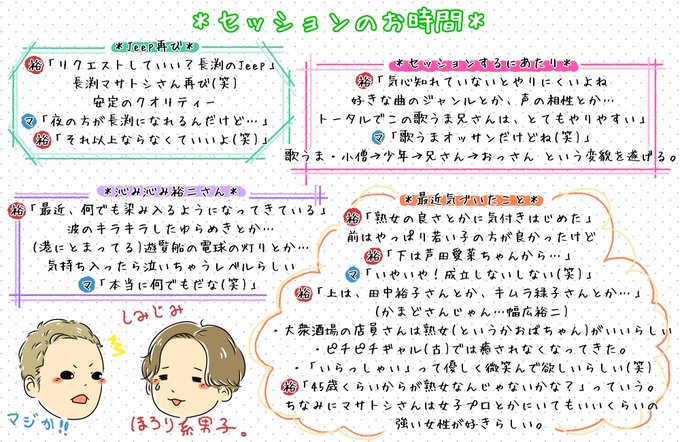 *セッションのお時間*
*Jeep再び*
裕「リクエストしていい?長渕のJeep」
長渕マサトシさん再び(笑)
安定のクオリティー
マ「夜の方が長渕になれるんだけど…」
裕「それ以上ならなくていいよ(笑)」
*セッションするにあたり*
裕「気心知れていないとやりにくいよね
好きな曲のジャンルとか、声の相性とか…
トータルでこの歌うま兄さんは、とてもやりやすい」
マ「歌うまオッサンだけどね(笑)」
歌うま・小僧→少年→兄さん→おっさん という変貌を遂げる。
*沁み沁み裕二さん*
裕「最近、何でも染み入るようになってきている」
波のキラキラしたゆらめきとか…
(港にとまってる)遊覧船の電球の灯りとか…
気持ち入ったら泣いちゃうレベルらしい
マ「本当に何でもだな(笑)」
*最近気づいたこと*
裕「熟女の良さとかに気付きはじめた」
前はやっぱり若い子の方が良かったけど
裕「下は芦田愛菜ちゃんから…」
マ「いやいや!成立しないしない(笑)」
裕「上は、田中裕子さんとか、キムラ緑子さんとか…」
(かまどさんじゃん…幅広裕二)
・大衆酒場の店員さんは熟女(というかおばちゃん)がいいらしい
・ピチピチギャル(古)では癒されなくなってきた。
・「いらっしゃい」って優しく微笑んで欲しいらしい(笑)
裕「45歳くらいからが熟女なんじゃないかな?」っていう。
ちなみにマサトシさんは女子プロとかにいてもいいくらいの
強い女性が好きらしい。
しみじみ
マジか!!
ほろり系男子。